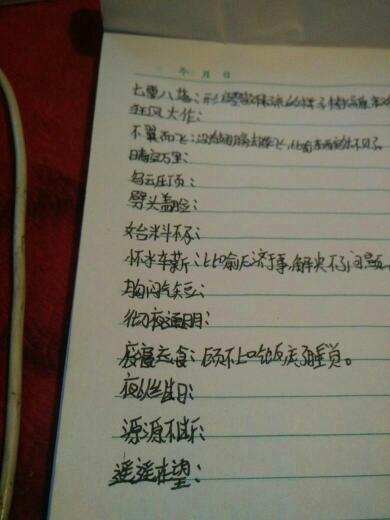 年 月 日
七零八落:形容零散的样子
狂风大作:
不翼而飞:没有翅膀去飞,比喻东西不见了。
晴空万里:
乌云压顶:
劈头盖脸:
始料不及:
杯水车薪:比喻无济于事,解决不了问题
胸闷气短:
彻夜通明:
废寝忘食:顾不上吃饭,睡觉。
夜以继日:
源源不断:
遥遥在望: